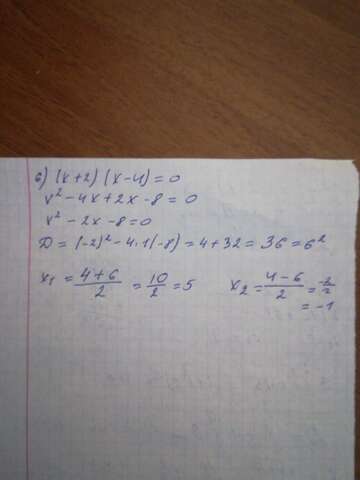 б) (x+2) (x-4)=0
x²-4x+2x-8=0
x²-2x-8=0
D = (-2)²-4·1(-8)=4+32=36=6²
x₁=4+6/2 =10/2=5 x₂=4-6/2=-2/2
=-1